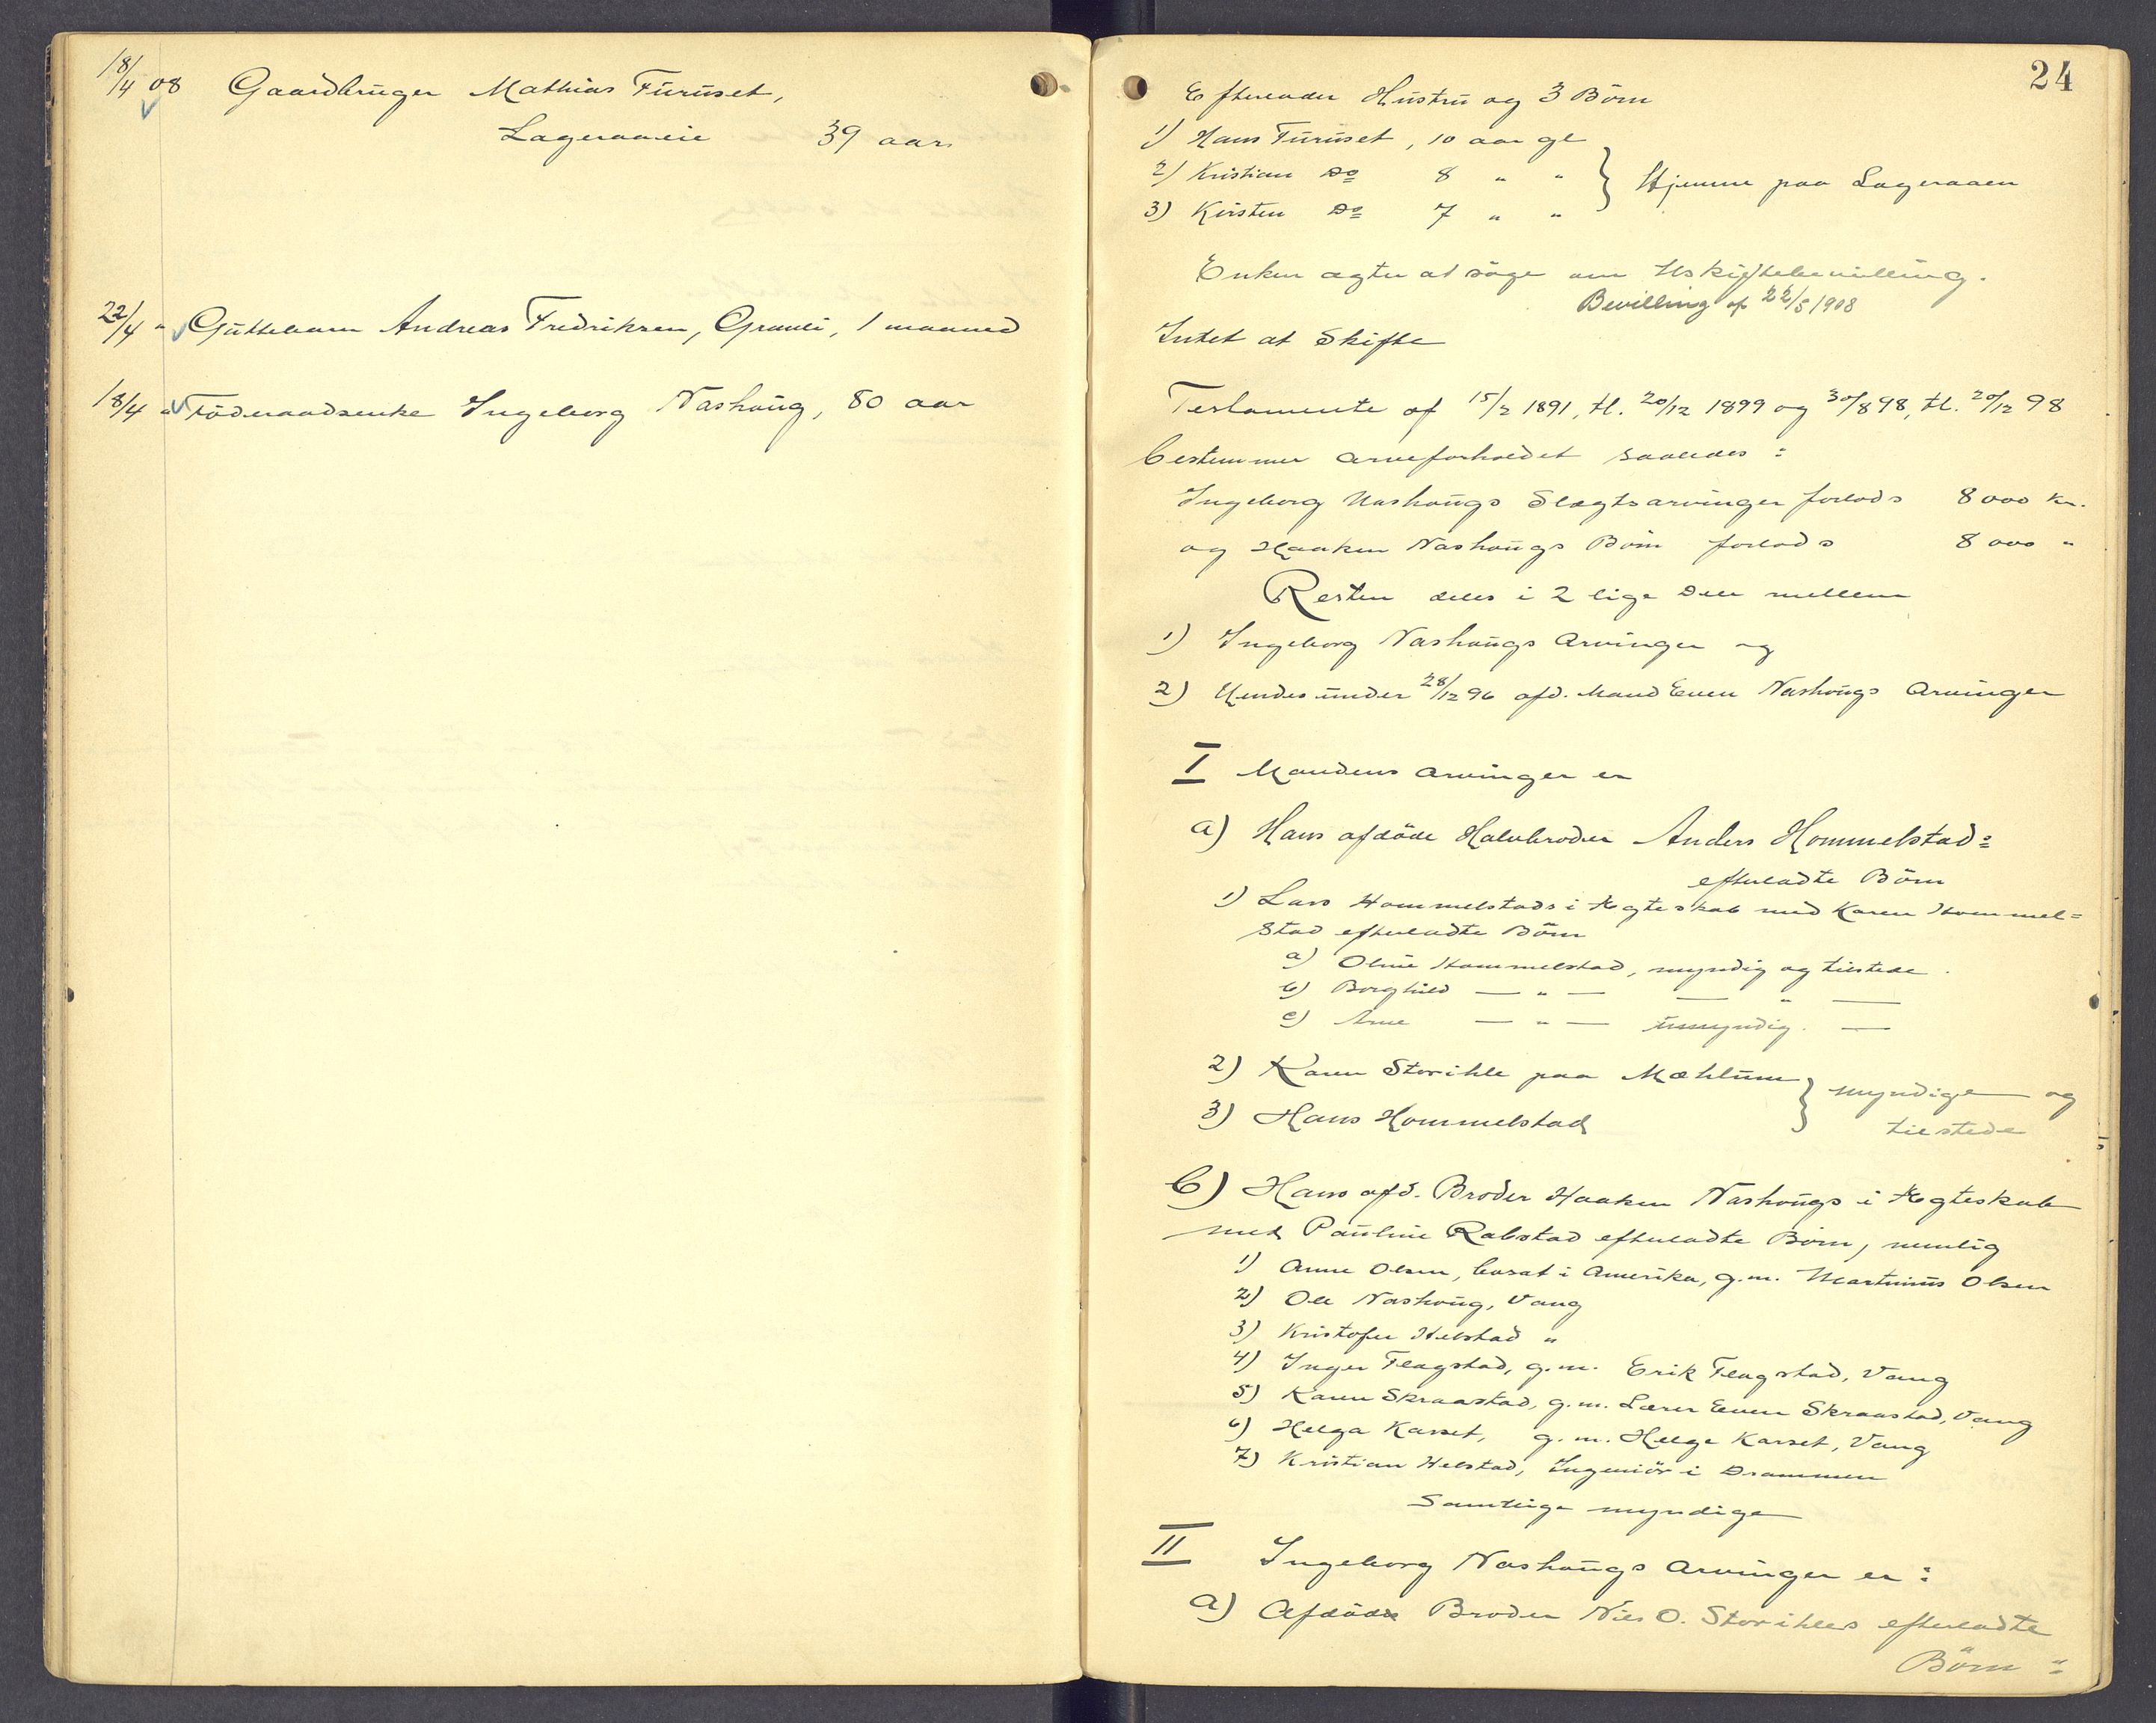 18/4 08 Gaardbruger Mathias Furuset,
Lageraaeie 39 aar
22/4 " Guttebarn Andreas Fredriksen, Granli, 1 maaned
18/4 " Föderaadsenke Ingeborg Nashoug, 80 aar
24
Efterlader Hustru og 3 Börn
1) Hans Furuset, 10 aar gl
2) Kristian Do 8 " "
3) Kirsten Do 7 " "
} Hjemme paa Lageraaen
Enken agter at söge om Uskiftebevilling.
Bevilling af 22/5 1908
Intet at Skifte
Testamente af 15/2 1891, tl. 20/12 1899 og 30/8 98, tl. 20/12 98
bestemmer arveforholdet saaledes:
Ingeborg Nashougs Slægtsarvinger forlods 8000 kr.
og Haaken Nashougs Börn forlods 8000 "
Resten deles i 2 lige Dele mellem
1) Ingeborg Nashougs Arvinger og
2) Hendes under 28/12 96 afd. Mand Even Nashougs Arvinger
I Mandens Arvinger er
a) Hans afdöde Halvbroder Anders Hommelstad:
efterladte Börn
1) Lars Hommelstads i Ægteskab med Karen Hommel=
stad efterladte Börn
a) Oline Hommelstad, myndig og tilstede.
b) Borghild — " — — " —
c) Arne — " — umyndig. —
2) Karen Storihle paa Mæhlum
3) Hans Hommelstad
} myndige og
tilstede
b) Hans afd. Broder Haaken Nashougs i Ægteskab
med Pauline Rabstad efterladte Börn, nemlig
1) Anne Olsen, bosat i Amerika, g.m. Martinius Olsen
2) Ole Nashoug, Vang
3) Kristofer Helstad "
4) Inger Flagstad, g.m. Erik Flagstad, Vang
5) Karen Skraastad, g.m. Lærer Even Skraastad, Vang
6) Helga Karset, g.m. Helge Karset, Vang
7) Kristian Helstad, Ingeniör i Drammen
Samtlige myndige
II Ingeborg Nashougs Arvinger er:
a) Afdöde Broder Nils O. Storihles efterladte
Börn :